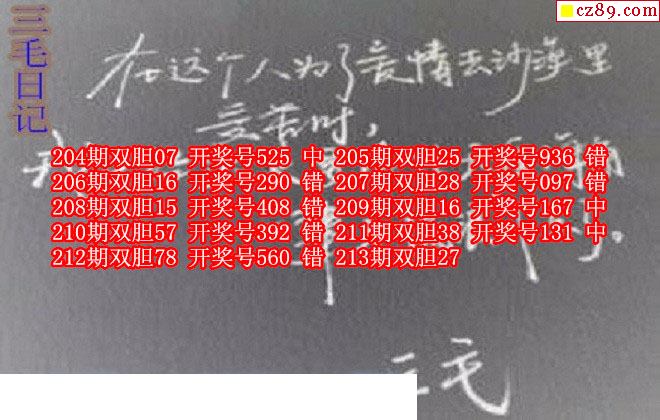 cz89.com
三毛日记
在这个人为了爱情去沙漠里
受苦时，
204期双胆07 开奖号525 中 205期双胆25 开奖号936 错
206期双胆16 开奖号290 错 207期双胆28 开奖号097 错
208期双胆15 开奖号408 错 209期双胆16 开奖号167 中
210期双胆57 开奖号392 错 211期双胆38 开奖号131 中
212期双胆78 开奖号560 错 213期双胆27
三毛